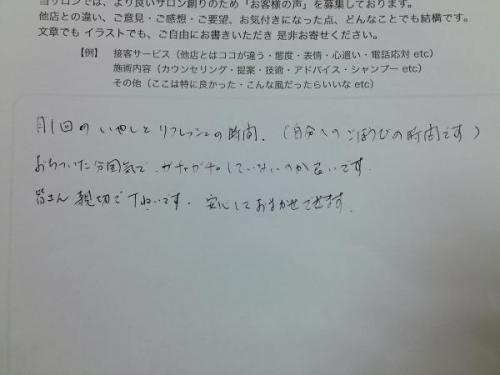 当サロンでは、より良いサロン創りのため「お客様の声」を募集しております。
他店との違い、ご意見・ご感想・ご要望、お気付きになった点、どんなことでも結構です。
文章でも イラストでも、ご自由にお書きいただき 是非お寄せください。
【例】 接客サービス（他店とはココが違う・態度・表情・心遣い・電話応対 etc）
施術内容（カウンセリング・提案・技術・アドバイス・シャンプー etc）
その他（ここは特に良かった・こんな風だったらいいな etc）
月1回の いやしと リフレッシュの時間。（自分へのごほうびの時間です）
おちついた雰囲気で、ガチャガチャしていないのが良いです。
皆さん 親切で ていねいです。安心しておまかせできます。